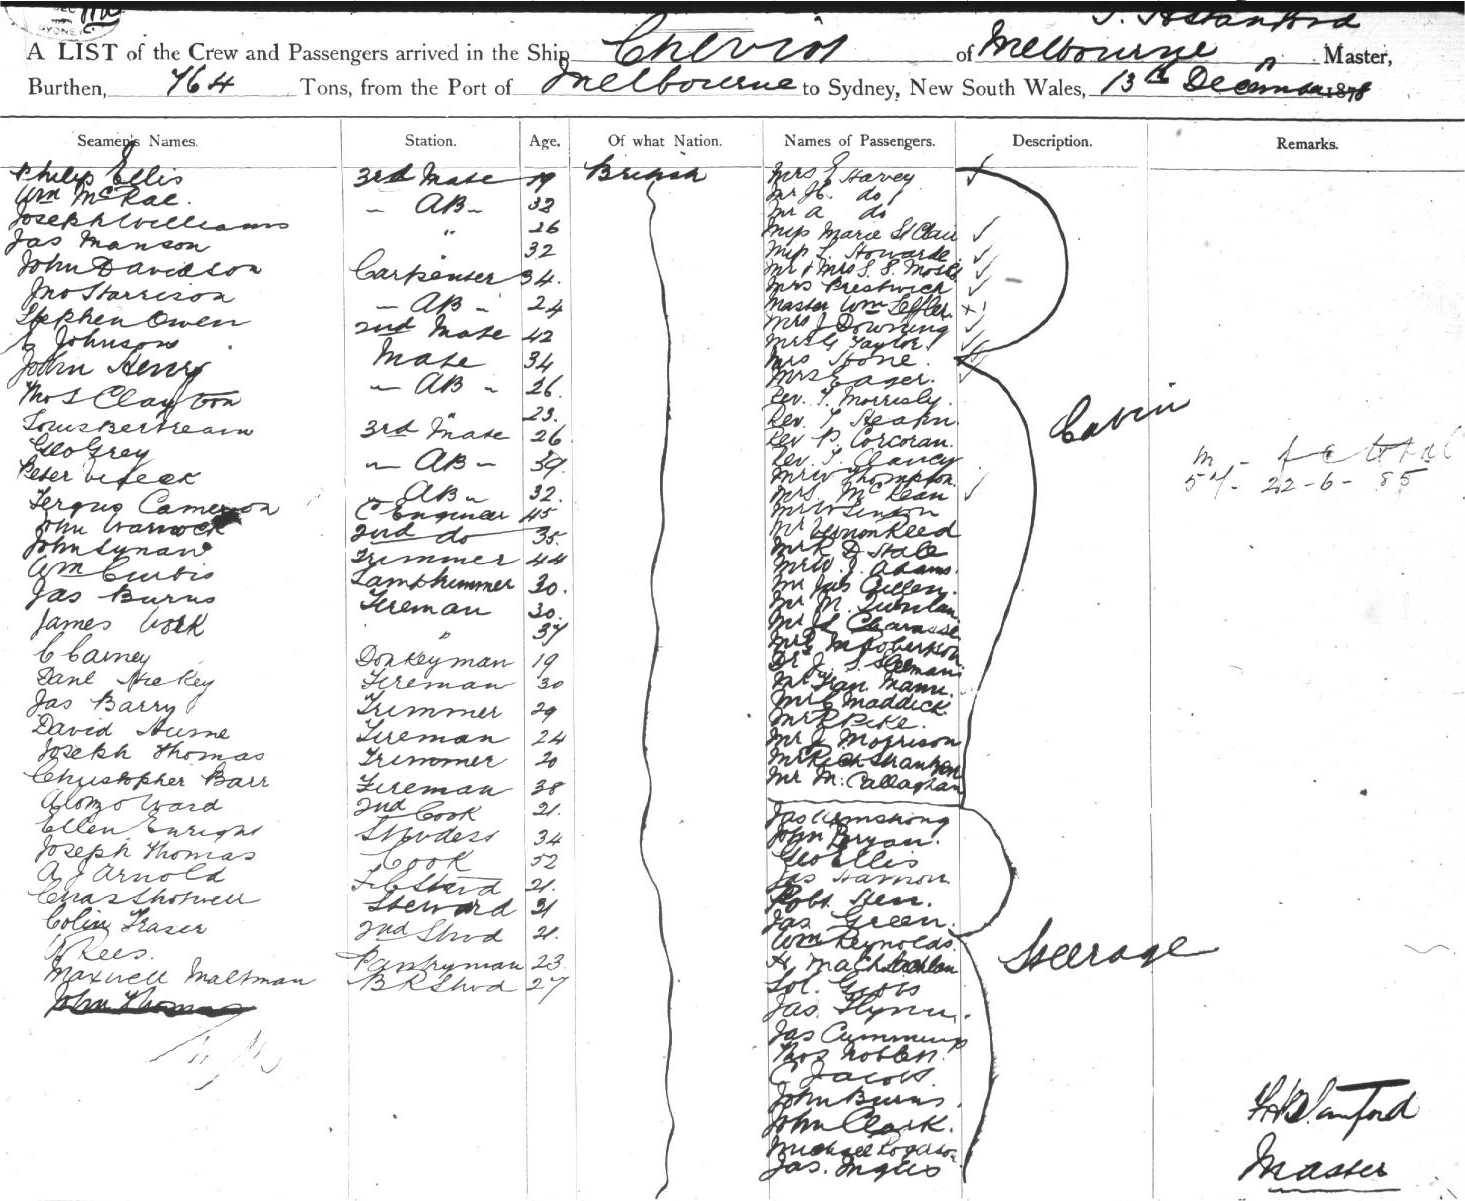 A LIST of the Crew and Passengers arrived in the Ship Cheviot of Melbourne Master,
Burthen, 764 Tons, from the Port of Melbourne to Sydney, New South Wales, 13th December 1878
Seamen's Names. Station. Age. Of what Nation. Names of Passengers. Description. Remarks.
Philip Ellis 3rd Mate 19 British Mrs E Harvey
Wm McRae. " AB " 32 Mr H. do
Joseph Williams " 26 Mr A do
Jas Manson 32 Miss Marie St Clair
John Davidson Carpenter 34. Miss L. Howarde
Jno Harrison " AB " 24 Mr & Mrs S. S.
Stephen Owen 2nd Mate 42 Mrs Prestwich
Johnson Mate 34 Master Wm Leffler
John Henry " AB " 26. Mrs J Downing
Thos Clayton " 23. Mrs G Taylor.
Louis Bertream 3rd Mate 26 Mrs Stone.
Geo Grey " AB " 39. Mrs Eager.
Peter " AB " 32. Rev. T. Morrisly.
Fergus Cameron C Engineer 45 Rev. T Heaphn
John Warnock 2nd do 35. Rev P. Corcoran.
John Lynan Trimmer 44 Rev. T. Clancy
Wm Curtis Lamptrimmer 30. Mr W Thompson.
Jas Burns Fireman 30. Mrs. McKean
James Work " 37 Mr W Linton
C Carney Donkeyman 19 Mr Vernon Reed
Danl Hickey Fireman 30 Mr R D
Jas Barry Trimmer 29 Mr W. J. Adams.
David Hume Fireman 24 Mr Jas Cullen.
Joseph Thomas Trimmer 20 Mr M. Quinlan
Christopher Barr Fireman 38 Mr
Alonzo Ward 2nd Cook 21. Robertson
Ellen Enright Stwdess 34 Dr J. S.
Joseph Thomas Cook 52 Mr Mann.
A J Arnold F C Stwd 21. Mr C Maddick
Chas Shotwell Steward 31 Mr R Pike.
Colin Fraser 2nd Stwd 21. Mr J Morrison
Rees. Pantryman 23. Mr Rich
Maxwell Maltman B R Stwd 27 Mr M. Callaghan
John Thomas
Cabin
22-6-85
Jas Armstrong
John Bryan.
Geo Ellis
Jas Harrison
Robt.
Jas Green.
Wm Reynolds.
H.
Sol.
Jas. Flynn.
Jas Cummings
Thos Noblett.
C Jacobs.
John Burns.
John Clark.
Michael
Jas. Inglis
Steerage
Master